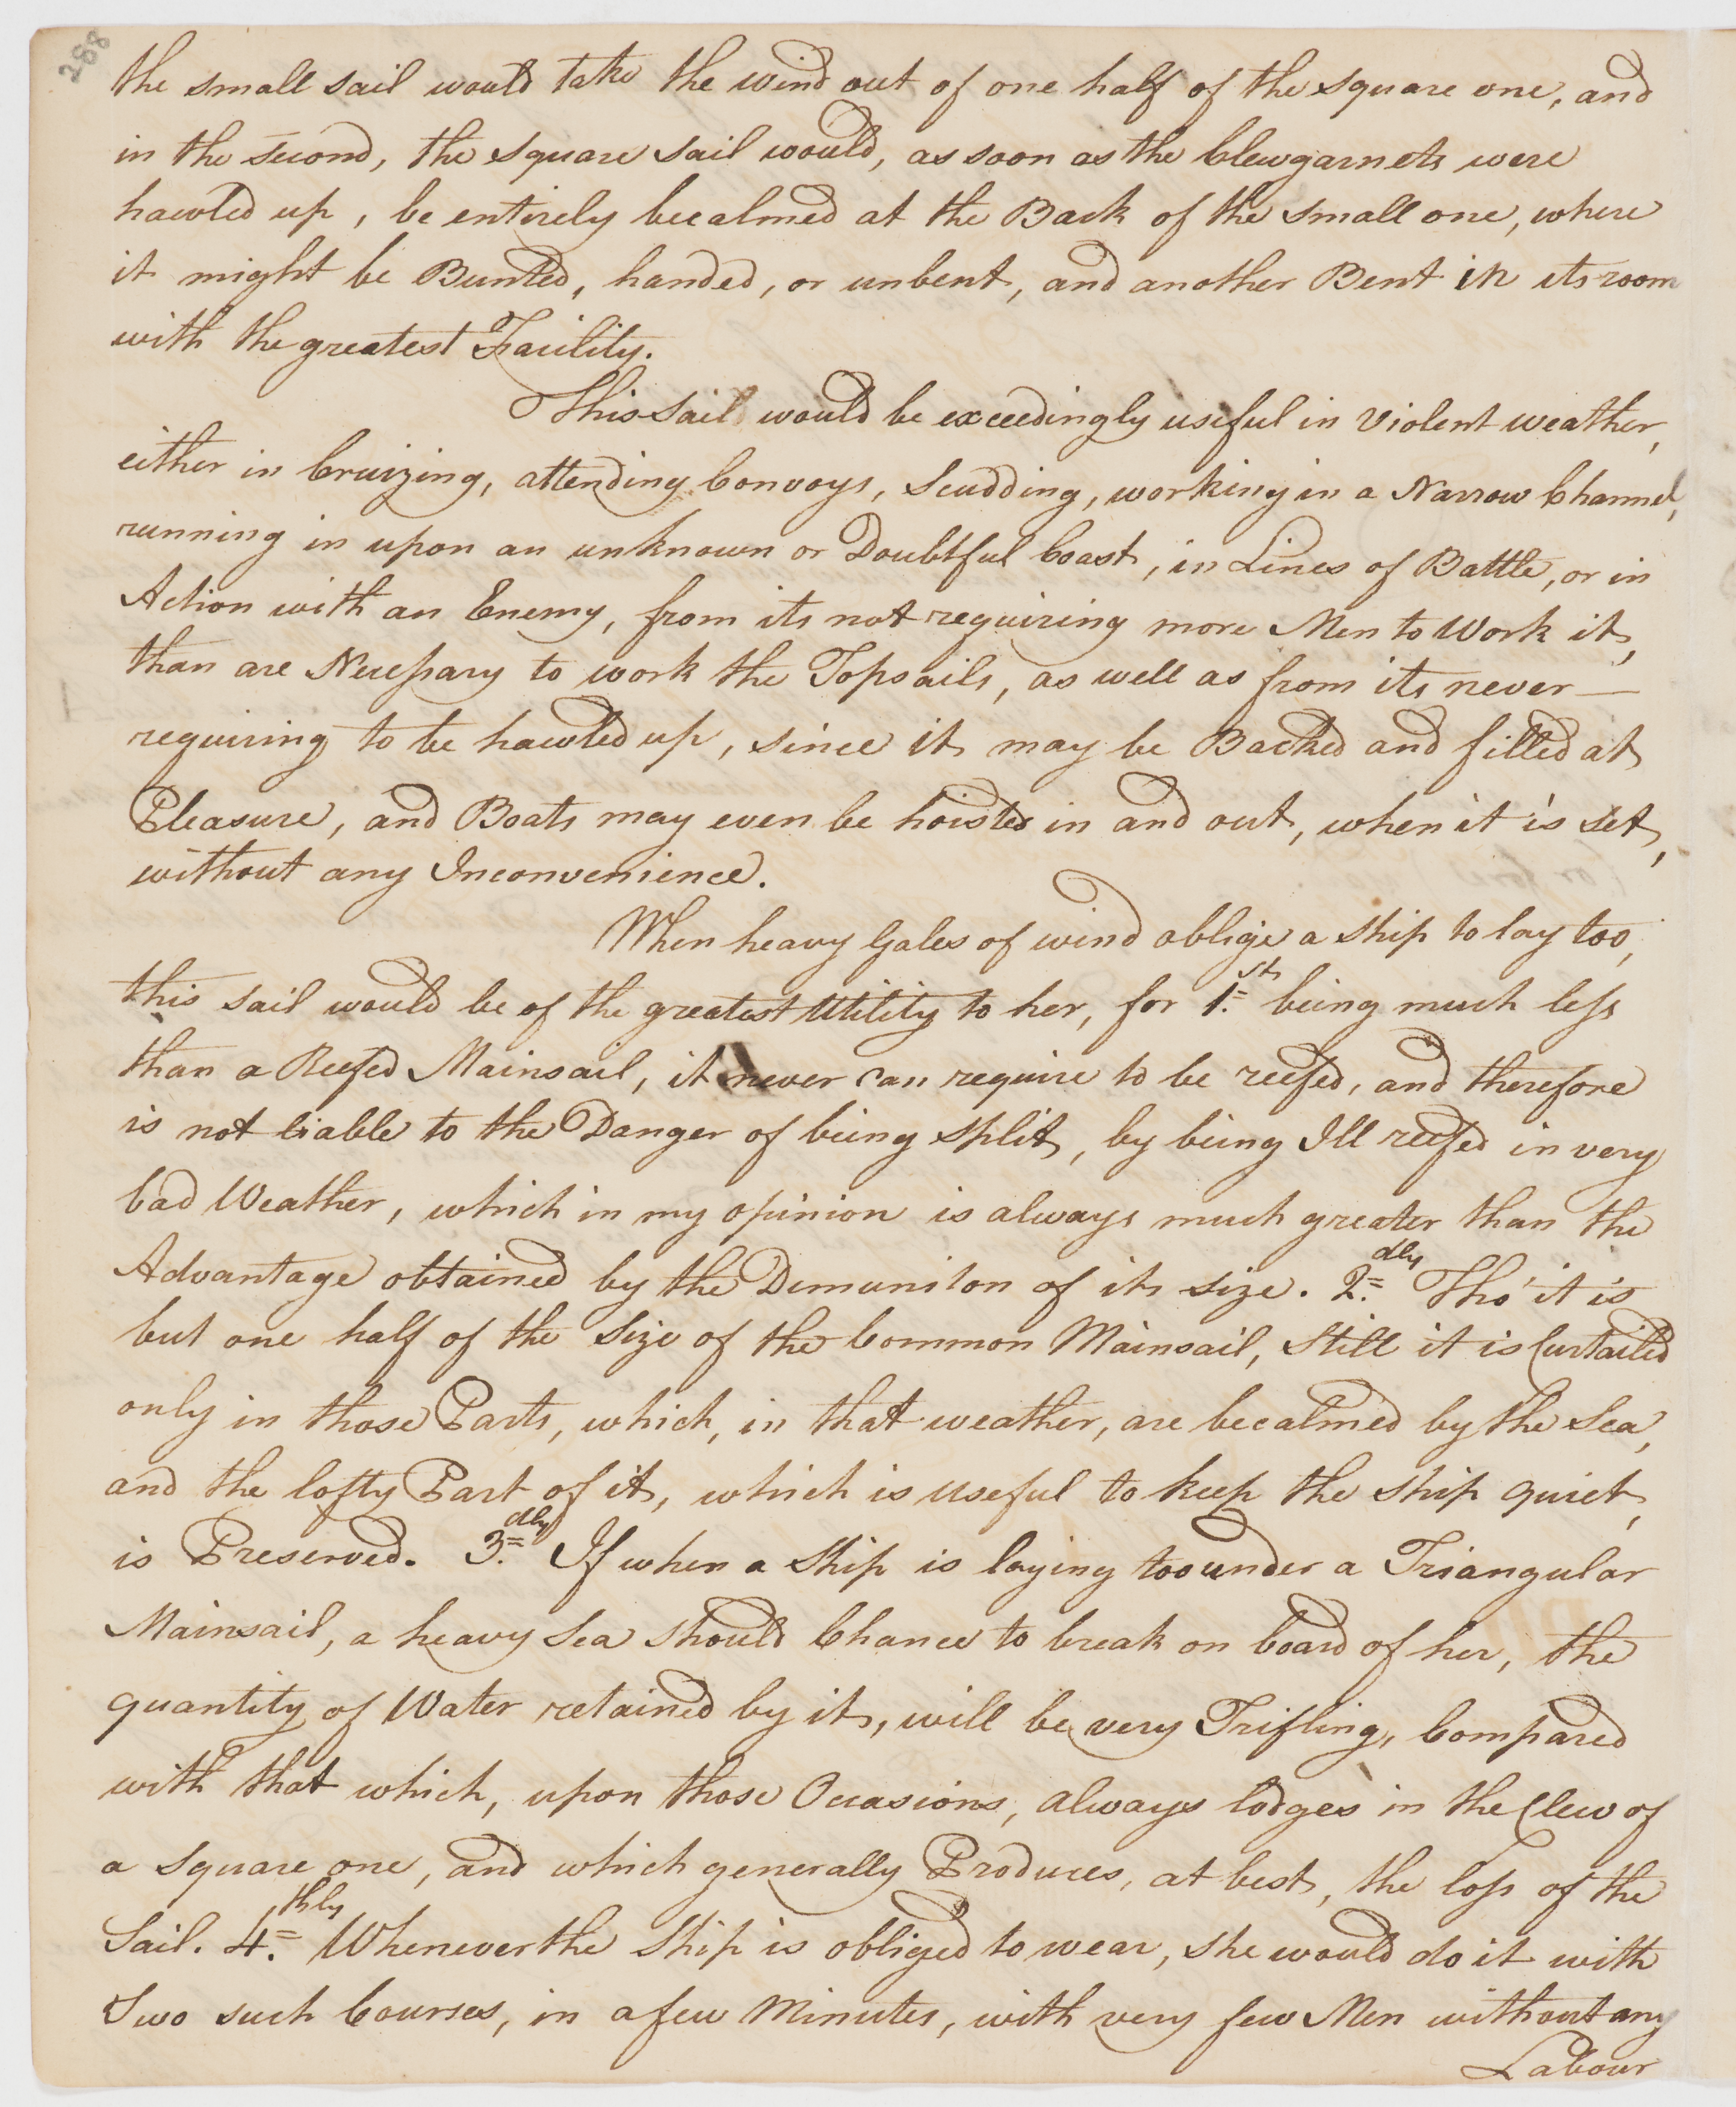 288
the small sail would take the wind out of one half of the square one, and
in the second, the square sail would, as soon as the Clewgarnets were
hawled up, be entirely becalmed at the Back of the small one, where
it might be Bunted, handed, or unbent, and another Bent in its room
with the greatest Facility.
This sail would be exceedingly useful in Violent weather,
either in Cruizing, attending Convoys, Scudding, working in a Narrow Channel,
running in upon an unknown or Doubtful Coast, in Lines of Battle, or in
Action with an Enemy, from its not requiring more Men to Work it,
than are Necessary to work the Topsails, as well as from its never—
requiring to be hawled up, since it may be Backed and filled at
Pleasure, and Boats may even be hoisted in and out, when it is set,
without any Inconvenience.
When heavy Gales of wind oblige a ship to lay too,
this sail would be of the greatest Utility to her, for 1.st being much less
than a Reefed Mainsail, it never can require to be reefed, and therefore
is not liable to the Danger of being split, by being Ill reefed in very
bad Weather, which in my opinion is always much greater than the
Advantage obtained by the Dimuniton of its size. 2.dly Tho' it is
but one half of the Size of the Common Mainsail, Still it is Curtailed
only in those Parts, which, in that weather, are becalmed by the Sea,
and the lofty Part of it, which is useful to keep the ship quiet,
is Preserved. 3.dly If when a Ship is laying too under a Triangular
Mainsail, a heavy Sea should Chance to break on board of her, the
quantity of Water retained by it, will be very Trifling, Compared
with that which, upon those Occasions, always lodges in the Clew of
a Square one, and which generally Produces, at best, the loss of the
Sail. 4.thly Whenever the Ship is obliged to wear, she would do it with
Two such Courses, in a few Minutes, with very few Men without any
Labour